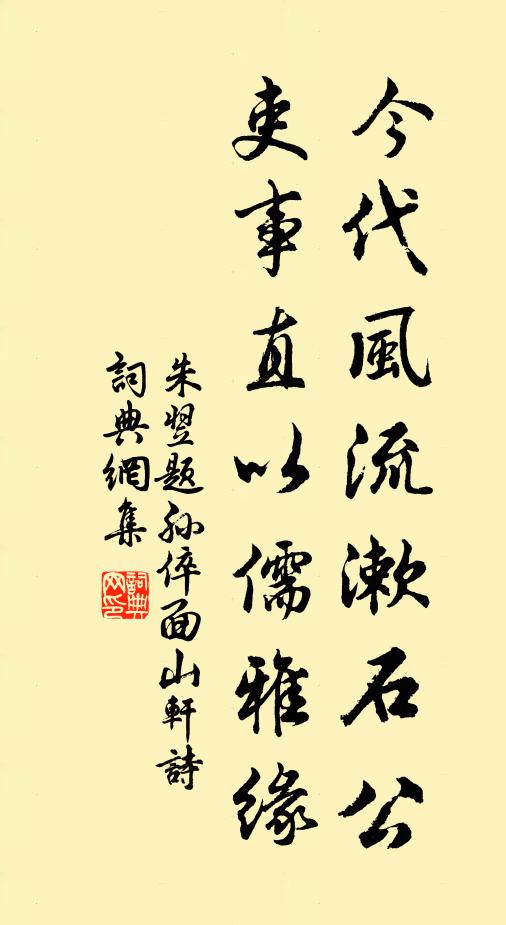 今代風流漱石公
吏事直以儒雅緣
朱翌題孙倅面山軒詩
詞典網集
詞典网印